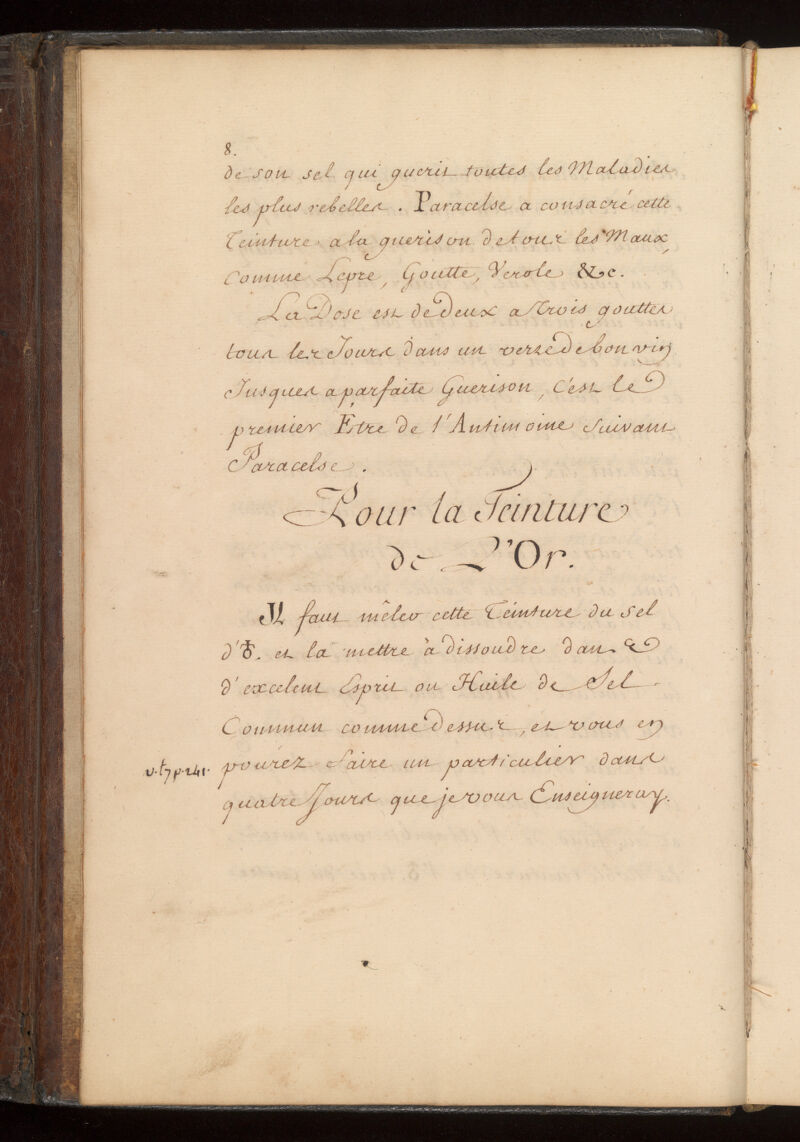 8.
de son sel qui guerit toutes les Maladies
les plus rebelles. Paracelse a consacré cette
Teinture a la guerison de tous les Maux,
Comme Lepre, Goutte, Verole &c.
La Dose est de Deux a Trois gouttes
tous les Jours dans un verre de bon vin
Jusques a parfaite Guerison, C'est le
premier Etre de l'Antimoine Suivant
Paracelse.
Pour la Teinture
de L'Or.
Il faut mêler cette Teinture du Sel
d'♁. et la mettre à dissoudre dans
d'excelent Esprit ou Huile de Sel
Commun comme dessus, et vous en
pourez faire un particulier dans
quatre Jours que je vous Enseigneray.
p. 241.